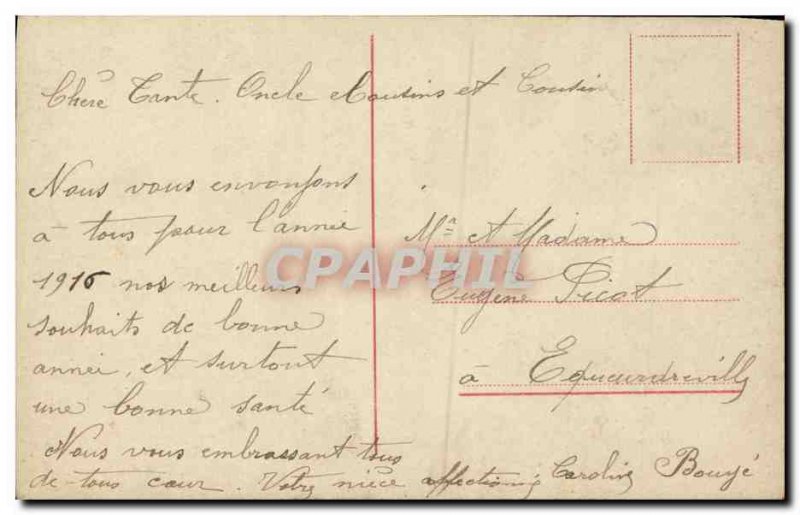 Chère Tante. Oncle Cousins et Cousin
Nous vous envoyons
à tous pour l'année
1916 nos meilleurs
souhaits de bonne
année, et surtout
une bonne santé
Nous vous embrassant tous
de tous cœur. Votre nièce affectionné Caroline
Mr et Madame
Eugène Picot
à Equeurdreville
CPAPHIL